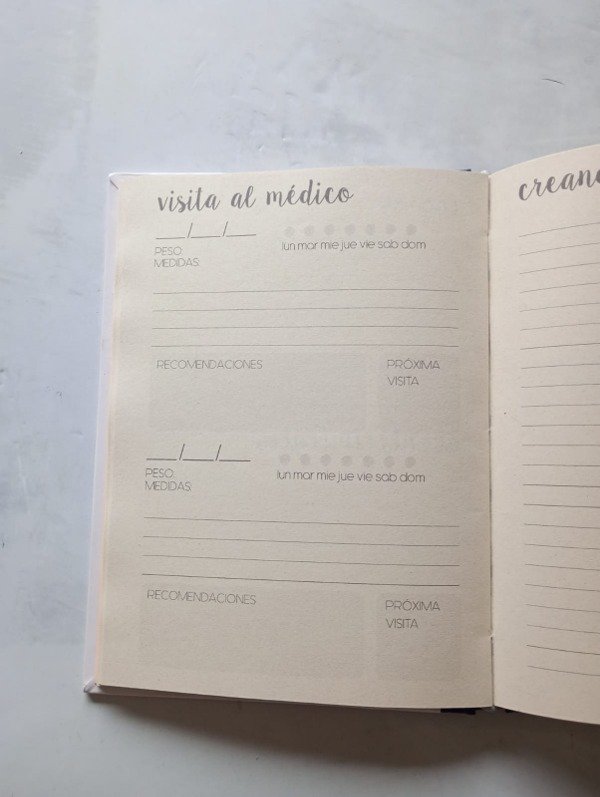 visita al médico
___/___/___
lun mar mie jue vie sab dom
PESO:
MEDIDAS:
RECOMENDACIONES
PRÓXIMA
VISITA
___/___/___
lun mar mie jue vie sab dom
PESO:
MEDIDAS:
RECOMENDACIONES
PRÓXIMA
VISITA